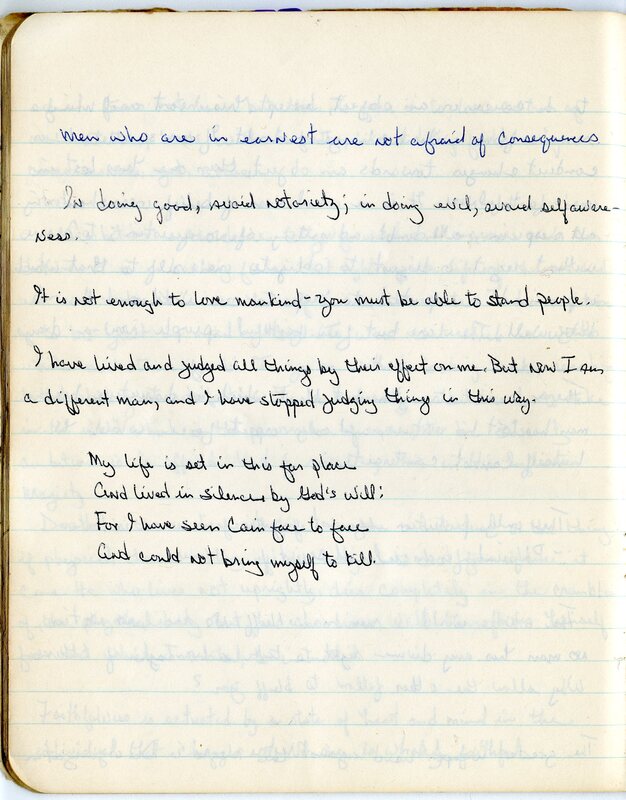 Men who are in earnest are not afraid of consequences
In doing good, avoid notoriety; in doing evil, avoid selfaware-
ness.
It is not enough to love mankind - you must be able to stand people.
I have lived and judged all things by their effect on me. But now I am
a different man, and I have stopped judging things in this way.
My life is set in this far place
And lived in silence by God's will;
For I have seen Cain face to face
And could not bring myself to kill.